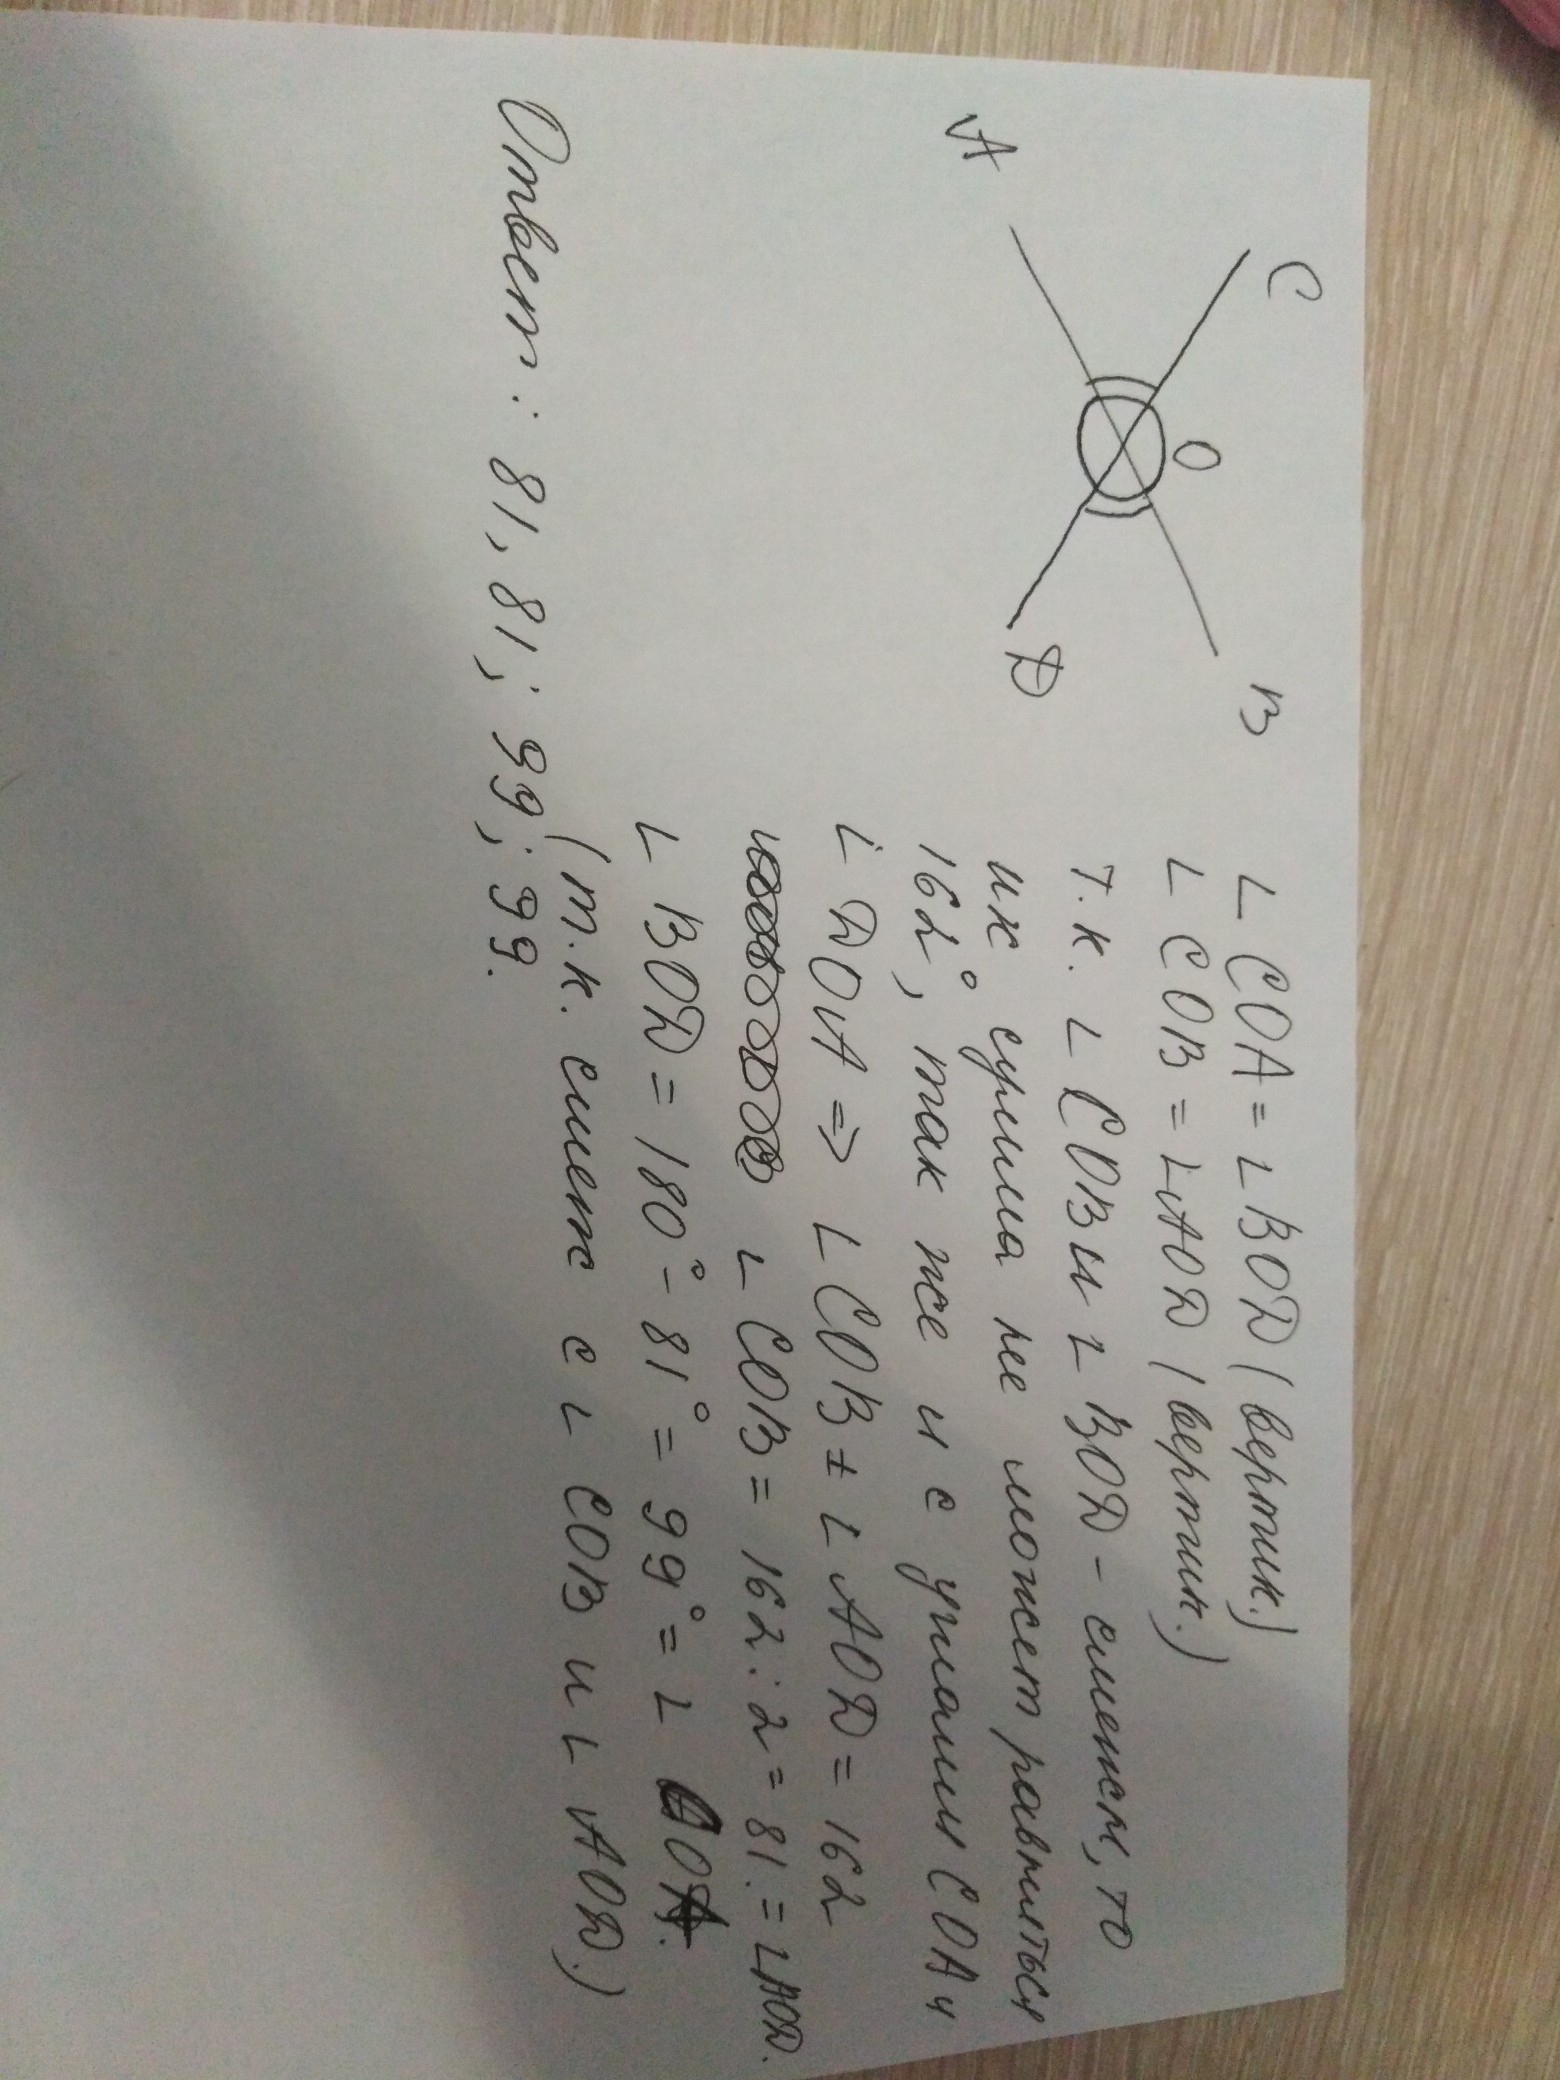 C
O
B
A
D
∠ COA = ∠ BOD (вертик.)
∠ COB = ∠ AOD (вертик.)
т.к. ∠ COB и ∠ BOD - смежн, то
их сумма не может равняться
162°, так же и с углами COA и
∠ DOA => ∠ COB + ∠ AOD = 162
∠ COB = 162 : 2 = 81. = ∠AOD.
∠ BOD = 180° - 81° = 99° = ∠ COA.
(т.к. смеж с ∠ COB и ∠ AOD.)
Ответ: 81, 81; 99; 99.